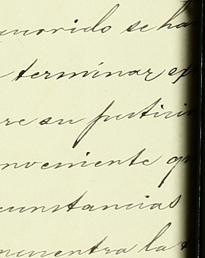 querido se ha
terminar ex
re su justici
nveniente q
cunstancias
ncuentra la